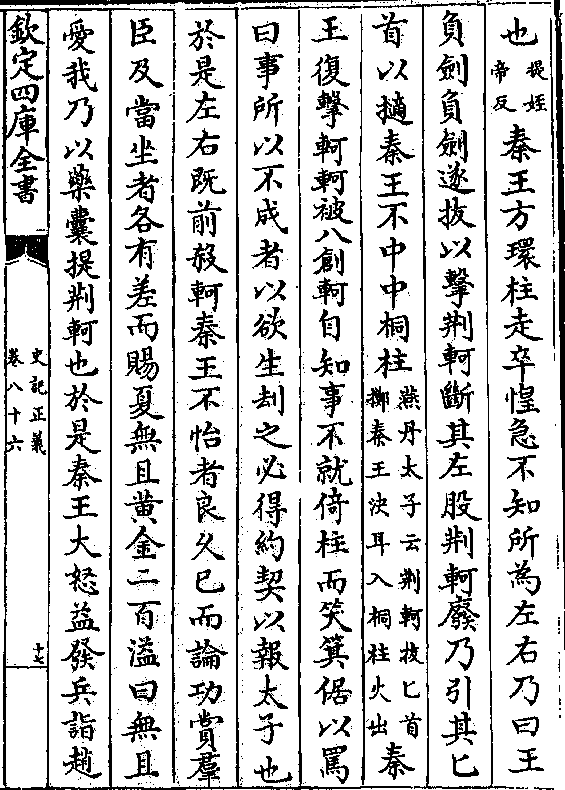 也提姪帝反秦王方環柱走卒惶急不知所為左右乃曰王
負劍負劍遂拔以擊荆軻斷其左股荆軻廢乃引其匕
首以擿秦王不中中桐柱燕丹太子云荆軻拔匕首擲秦王決耳入桐柱火出秦
王復擊軻軻被八創軻自知事不就倚柱而笑箕倨以罵
曰事所以不成者以欲生刦之必得約契以報太子也
於是左右既前殺軻秦王不怡者良久已而論功賞羣
臣及當坐者各有差而賜夏無且黄金二百溢曰無且
愛我乃以藥囊提荆軻也於是秦王大怒益發兵詣趙
欽定四庫全書
史記正義
卷八十六
十七